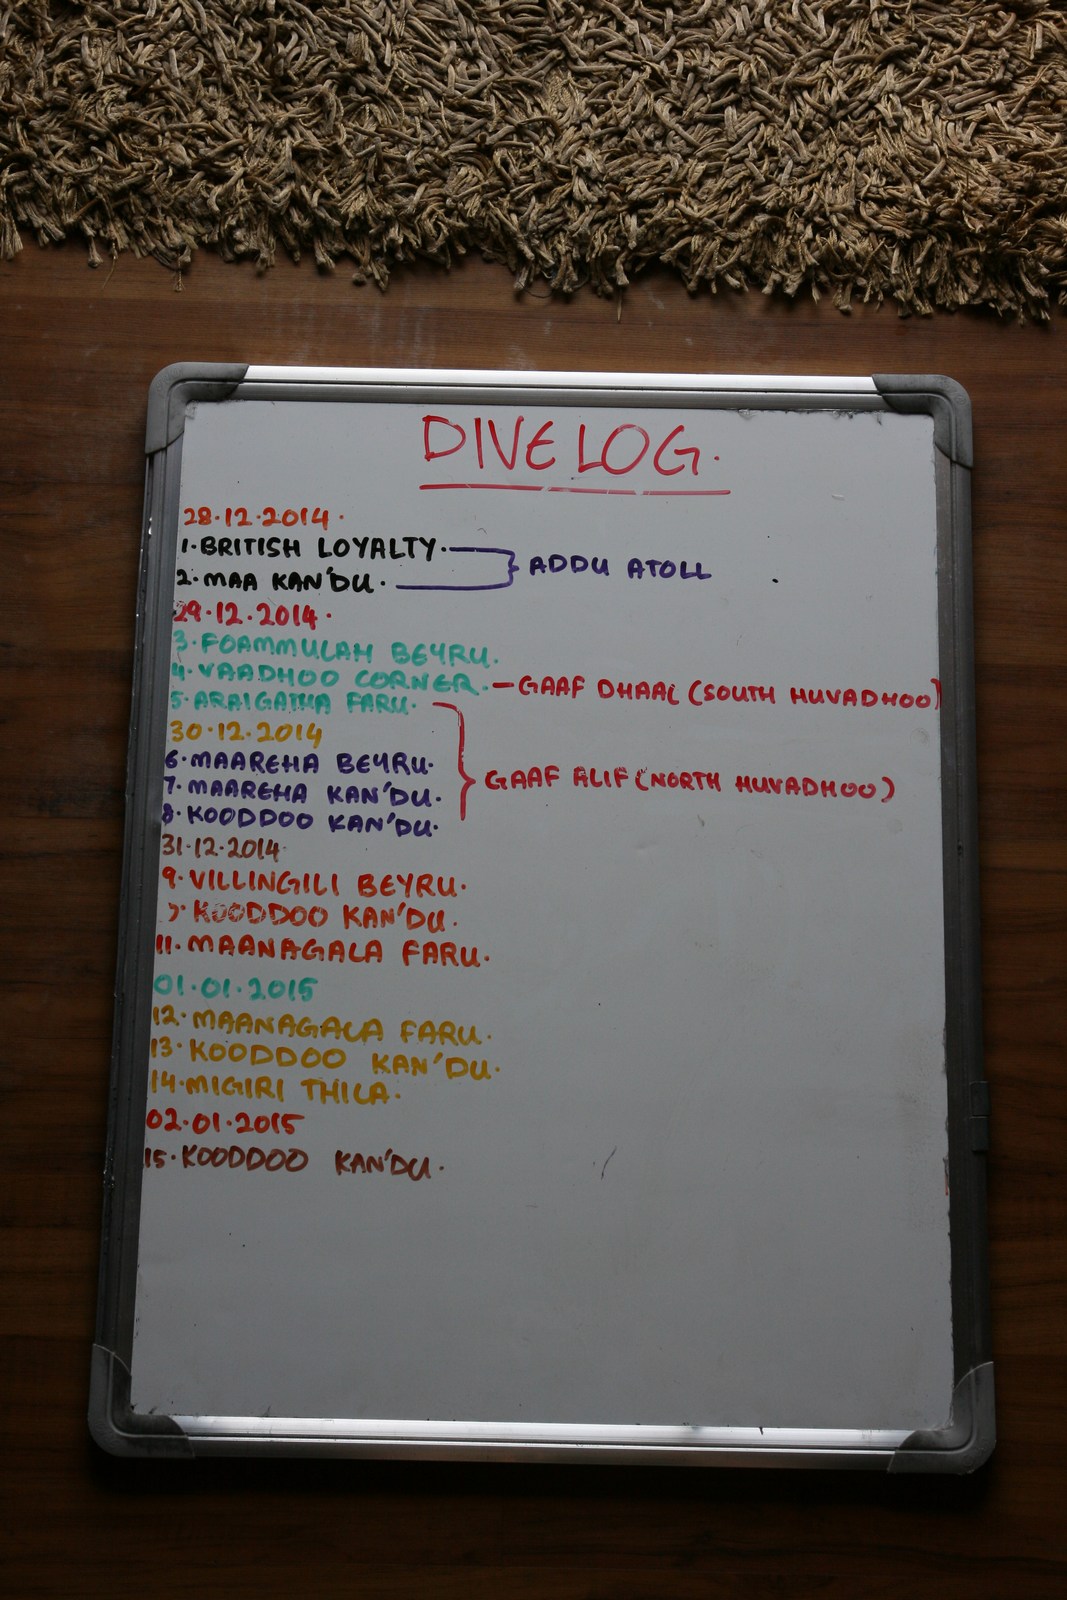 DIVE LOG.
28.12.2014.
1. BRITISH LOYALTY.
2. MAA KAN'DU.
ADDU ATOLL
29.12.2014.
3. FOAMMULAH BEYRU.
4. VAADHOO CORNER. - GAAF DHAAL (SOUTH HUVADHOO)
5. ARAIGATHA FARU.
30.12.2014
6. MAAREHA BEYRU.
7. MAAREHA KAN'DU.
8. KOODDOO KAN'DU.
GAAF ALIF (NORTH HUVADHOO)
31.12.2014
9. VILLINGILI BEYRU.
KOODDOO KAN'DU.
11. MAANAGALA FARU.
01.01.2015
12. MAANAGALA FARU.
13. KOODDOO KAN'DU.
14. MIGIRI THILA.
02.01.2015
15. KOODDOO KAN'DU.